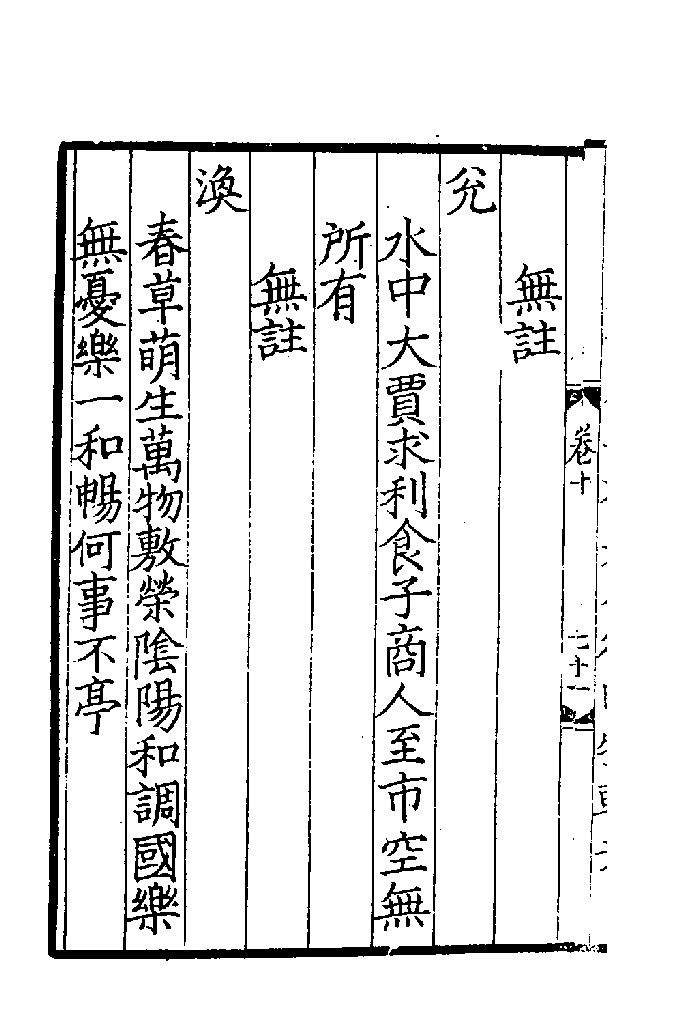 無註
兊
水中大賈求利食子商人至市空無
所有
無註
渙
春草萌生萬物敷榮隂陽和調國樂
無憂樂一和暢何事不亭
卷十
七十一